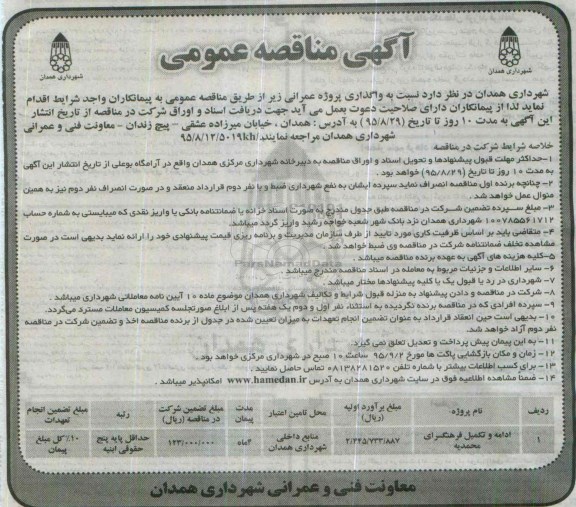 آگهی مناقصه عمومی
شهرداری همدان
شهرداری همدان
شهرداری همدان در نظر دارد نسبت به واگذاری پروژه عمرانی زیر از طریق مناقصه عمومی به پیمانکاران واجد شرایط اقدام
نماید لذا از پیمانکاران دارای صلاحیت دعوت بعمل می آید جهت دریافت اسناد و اوراق شرکت در مناقصه از تاریخ انتشار
این آگهی به مدت ۱۰ روز تا تاریخ (۹۵/۸/۲۹) به آدرس : همدان ، خیابان میرزاده عشقی – پیچ زندان – معاونت فنی و عمرانی
شهرداری همدان مراجعه نمایند. ۹۵/۸/۱۳/۵۰۱۹kh
خلاصه شرایط شرکت در مناقصه
۱-حداکثر مهلت قبول پیشنهادها و تحویل اسناد و اوراق مناقصه به دبیرخانه شهرداری مرکزی همدان واقع در آرامگاه بوعلی از تاریخ انتشار این آگهی
به مدت ۱۰ روز تا تاریخ (۹۵/۸/۲۹) خواهد بود.
۲- چنانچه برنده اول مناقصه انصراف نماید سپرده ایشان به نفع شهرداری ضبط و با نفر دوم قرارداد منعقد و در صورت انصراف نفر دوم نیز به همین
منوال عمل خواهد شد.
۳- مبلغ سپرده تضمین شرکت در مناقصه طبق جدول مندرج به صورت اسناد خزانه یا ضمانتنامه بانکی یا واریز نقدی که میبایستی به شماره حساب
۱۰۰۷۸۵۵۶۱۷۱۲ شهرداری همدان نزد بانک شهر شعبه خواجه رشید واریز گردد میباشد.
۴- متقاضی باید بر اساس ظرفیت کاری مورد تایید از طرف سازمان مدیریت و برنامه ریزی قیمت پیشنهادی خود را ارائه نماید بدیهی است در صورت
مشاهده تخلف ضمانتنامه شرکت در مناقصه وی ضبط خواهد شد.
۵-کلیه هزینه های آگهی به عهده برنده مناقصه میباشد .
۶- سایر اطلاعات و جزئیات مربوط به معامله در اسناد مناقصه مندرج میباشد.
۷- شهرداری در رد یا قبول یک یا کلیه پیشنهادها مختار میباشد.
۸- شرکت در مناقصه و دادن پیشنهاد به منزله قبول شرایط و تکالیف شهرداری همدان موضوع ماده ۱۰ آیین نامه معاملاتی شهرداری میباشد .
۹- سپرده افرادی که در مناقصه برنده نگردیده به استثناء نفر اول و دوم یک هفته پس از ابلاغ صورتجلسه کمیسیون معاملات مسترد می‌گردد.
۱۰- بدیهی است حین انعقاد قرارداد به عنوان تضمین انجام تعهدات به میزان تعیین شده در جدول از برنده مناقصه اخذ و تضمین شرکت در مناقصه
نفر دوم آزاد خواهد شد.
۱۱- به این پیمان پیش پرداخت و تعدیل تعلق نمی گیرد.
۱۲- زمان و مکان بازگشایی پاکت ها مورخ ۹۵/۹/۲ ساعت ۱۰ صبح در شهرداری مرکزی خواهد بود.
۱۳- برای کسب اطلاعات بیشتر با شماره تلفن ۰۸۱۳۸۲۸۱۵۲۰ تماس حاصل نمایید .
۱۴- ضمنا مشاهده اطلاعیه فوق در سایت شهرداری همدان به آدرس www.hamedan.ir امکانپذیر میباشد .
ردیف نام پروژه مبلغ برآورد اولیه (ریال) محل تامین اعتبار مدت پیمان مبلغ تضمین شرکت در مناقصه (ریال) رتبه مبلغ تضمین انجام تعهدات
۱ ادامه و تکمیل فرهنگسرای محمدیه ۲/۴۴۵/۷۳۳/۸۸۷ منابع داخلی شهرداری همدان ۶ماه ۱۲۳/۰۰۰/۰۰۰ حداقل پایه پنج حقوقی ابنیه ۱۰٪ کل مبلغ پیمان
معاونت فنی و عمرانی شهرداری همدان